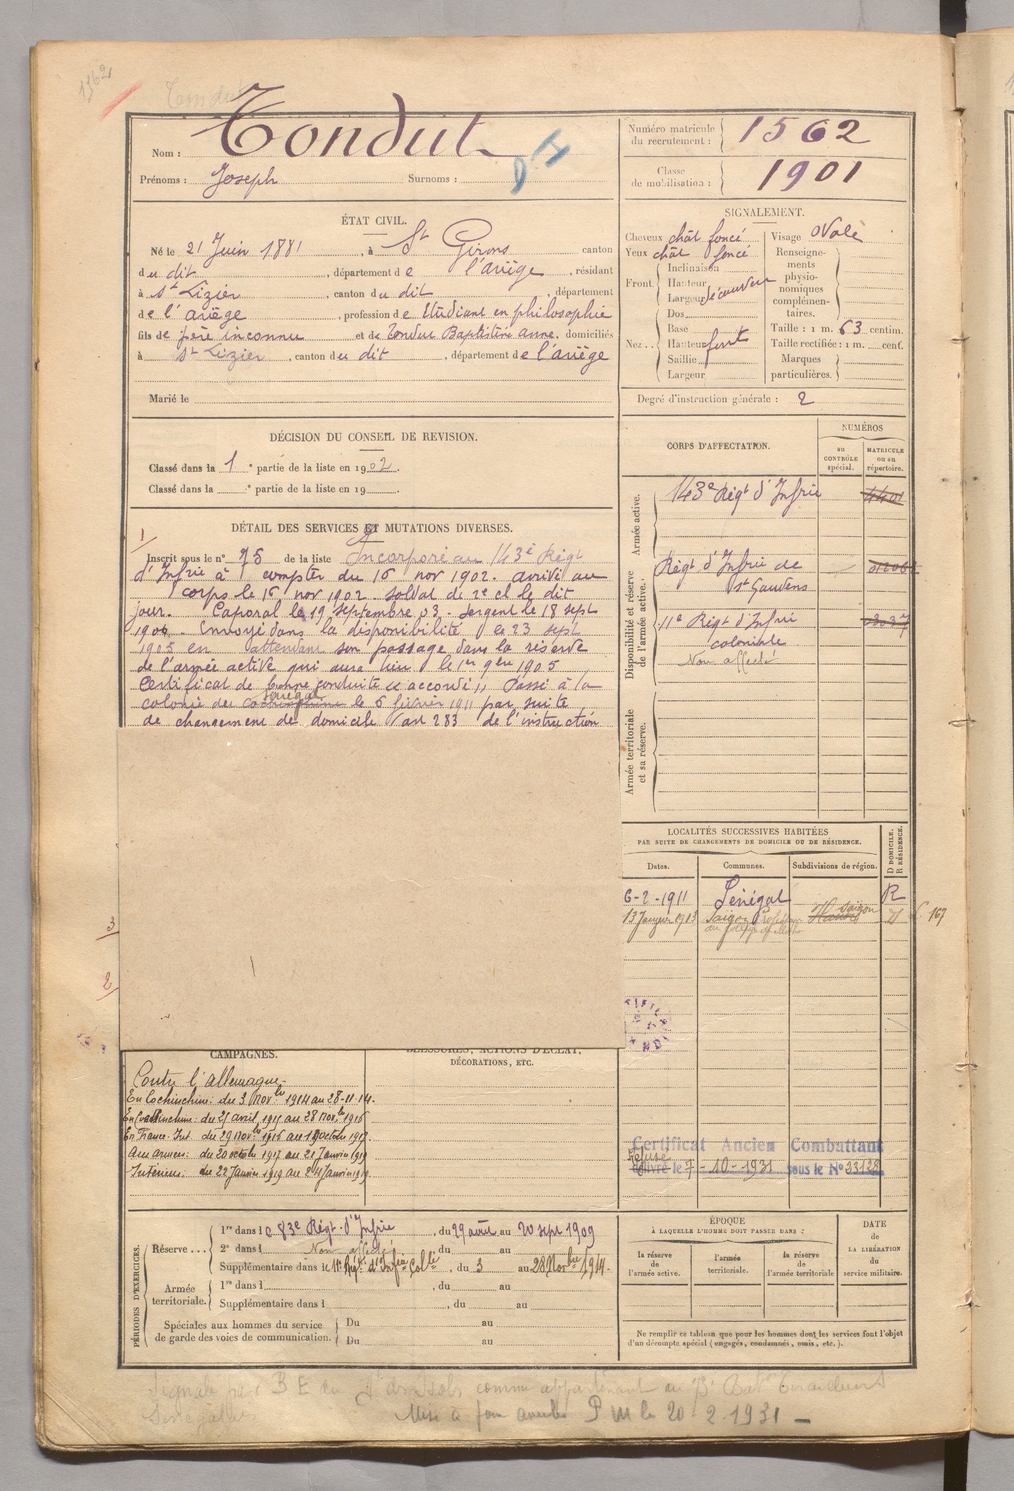 1562
Tondut
Nom : Tondut
Prénoms : Joseph Surnoms :
Numéro matricule du recrutement : 1562
Classe de mobilisation : 1901
ÉTAT CIVIL.
Né le 21 Juin 1881, à St Girons canton
du dit, département de l'ariège, résidant
à St Lizier, canton du dit, département
de l'ariège, profession de Etudiant en philosophie
fils de père inconnu et de Tondut Baptistine anne, domiciliés
à St Lizier, canton du dit, département de l'ariège
Marié le
SIGNALEMENT.
Cheveux chât foncé
Yeux chât foncé
Front. Inclinaison
Hauteur
Largeur découvert
Nez.. Dos
Base
Hauteur fort
Saillie
Largeur
Visage ovale
Renseignements physionomiques complémentaires.
Taille : 1 m. 63 centim.
Taille rectifiée : 1 m. cent.
Marques particulières.
Degré d'instruction générale : 2
DÉCISION DU CONSEIL DE REVISION.
Classé dans la 1e partie de la liste en 1902.
Classé dans la e partie de la liste en 19 .
DÉTAIL DES SERVICES ET MUTATIONS DIVERSES.
1/
Inscrit sous le n° 75 de la liste Incorporé au 143e Régt
d'Infrie à compter du 16 nov 1902. arrivé au
corps le 16 nov 1902. soldat de 2e cl le dit
jour. Caporal le 19 septembre 03. Sergent le 18 sept
1904. Envoyé dans la disponibilité le 23 sept
1905 en attendant son passage dans la réserve
de l'armée active qui aura lieu le 1er 9bre 1905
Certificat de bonne conduite "accordé" Passé à la
Sénégal
colonie de cochinchine le 6 février 1911 par suite
de changement de domicile art 283 de l'instruction
CORPS D'AFFECTATION.
NUMÉROS
au CONTRÔLE spécial.
MATRICULE ou au répertoire.
Armée active.
143e Régt d'Infrie
Disponibilité et réserve de l'armée active.
Régt d'Infrie de
St Gaudens
11e Régt d'Infrie
coloniale
Non affecté
Armée territoriale et sa réserve.
LOCALITÉS SUCCESSIVES HABITÉES
PAR SUITE DE CHANGEMENTS DE DOMICILE OU DE RÉSIDENCE.
Dates. Communes. Subdivisions de région. D DOMICILE. R RÉSIDENCE.
6-2-1911 Sénégal R
13 Janvier 1913 Saigon Saigon
167
3
2
CAMPAGNES.
BLESSURES, ACTIONS D'ÉCLAT,
DÉCORATIONS, ETC.
Contre l'allemagne
En Cochinchine: du 3 Novbre 1914 au 28-11-14.
En Cochinchine: du 27 avril 1915 au 28 Novbre 1916
En France. Int. du 29 Novbre 1916 au 19 octobre 1917.
Aux armées: du 20 octobre 1917 au 21 Janvier 1919
Intérieur: du 22 Janvier 1919 au 24 Janvier 1919.
Certificat Ancien Combattant
Refusé
Délivré le 7-10-1931 sous le N° 33128
PÉRIODES D'EXERCICES.
Réserve ... 1re dans le 83e Régt d'Infrie, du 29 août au 20 sept 1909
2e dans l Non affecté, du au
Supplémentaire dans le 11e Régt d'Infrie Colle, du 3 au 28 Novbre 1914.
Armée territoriale. 1re dans l , du au
Supplémentaire dans l , du au
Spéciales aux hommes du service de garde des voies de communication. Du au
Du au
ÉPOQUE
À LAQUELLE L'HOMME DOIT PASSER DANS :
la réserve de l'armée active.
l'armée territoriale.
la réserve de l'armée territoriale
DATE
de
LA LIBÉRATION
du
service militaire.
Ne remplir ce tableau que pour les hommes dont les services font l'objet
d'un décompte spécial (engagés, condamnés, omis, etc.).
Signalé par B E comme appartenant au Batn Tirailleurs
Sénégalais
Mise à jour P M le 20-2-1931